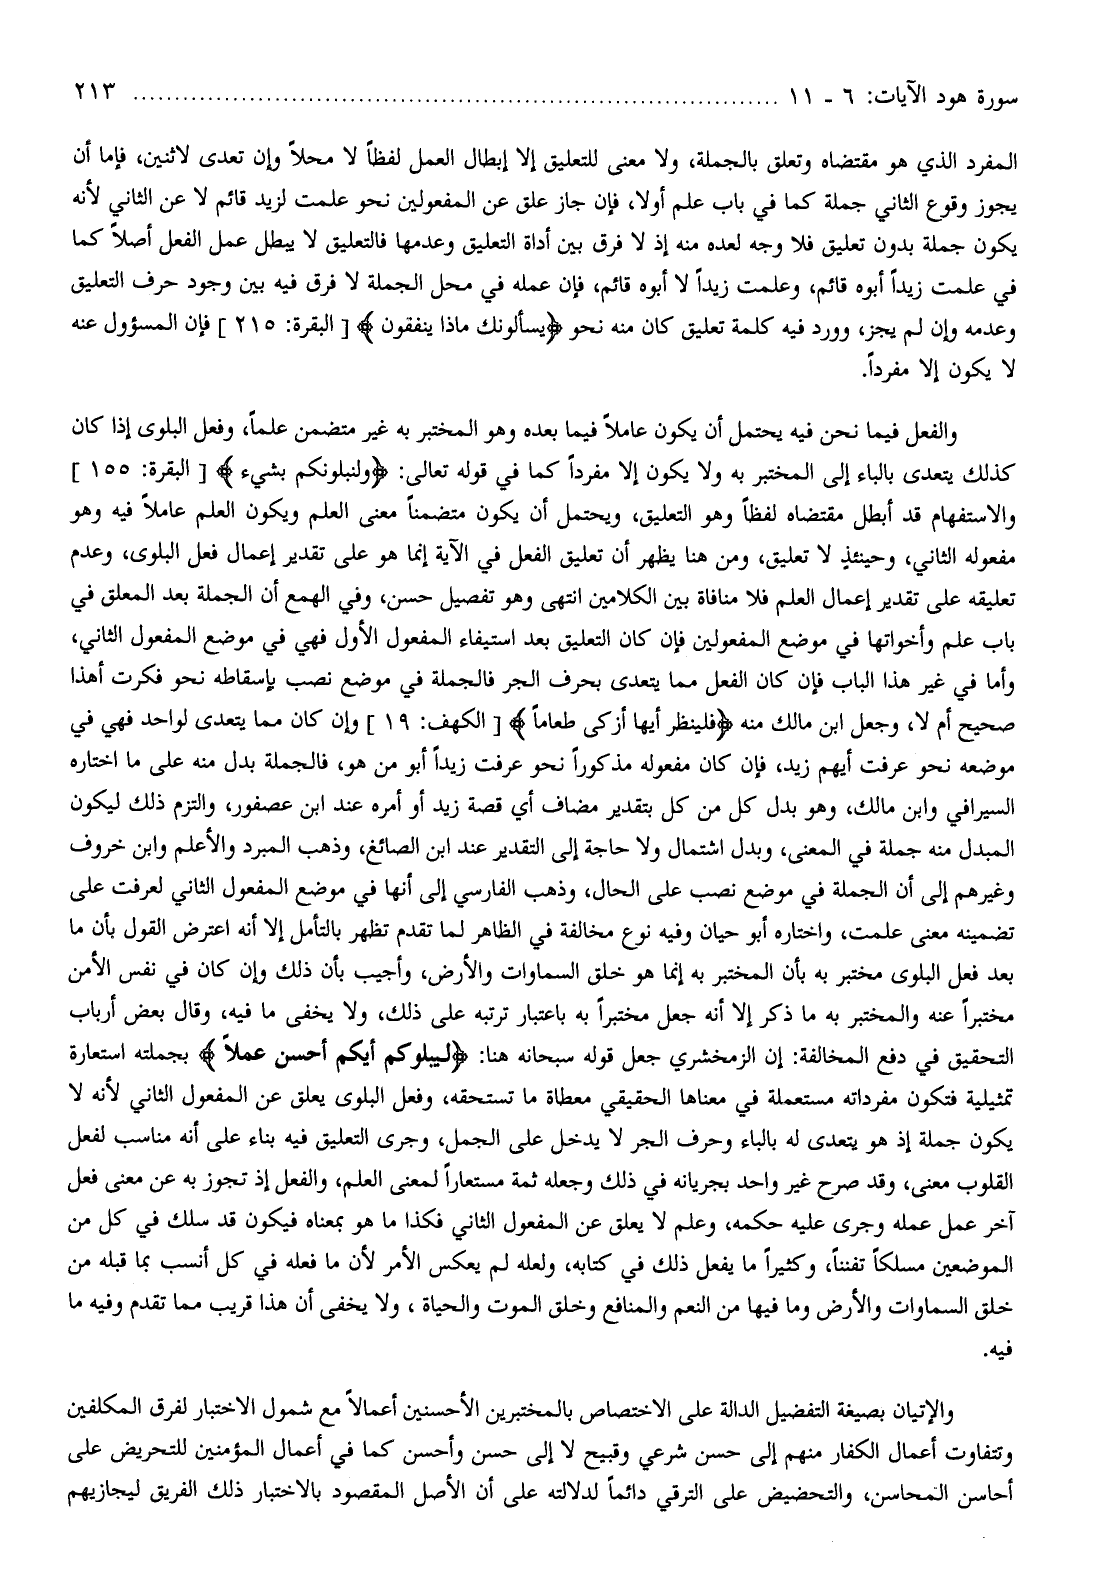 سورة هود الآيات: ٦ - ١١ ............................................................ ٢١٣
المفرد الذي هو مقتضاه وتعلق بالجملة، ولا معنى للتعليق إلا إبطال العمل لفظاً لا محلاً وإن تعدى لاثنين، فإما أن
يجوز وقوع الثاني جملة كما في باب علم أولا، فإن جاز علق عن المفعولين نحو علمت لزيد قائم لا عن الثاني لأنه
يكون جملة بدون تعليق فلا وجه لعده منه إذ لا فرق بين أداة التعليق وعدمها فالتعليق لا يبطل عمل الفعل أصلاً كما
في علمت زيداً أبوه قائم، وعلمت زيداً لا أبوه قائم، فإن عمله في محل الجملة لا فرق فيه بين وجود حرف التعليق
وعدمه وإن لم يجز، وورد فيه كلمة تعليق كان منه نحو ﴿يسألونك ماذا ينفقون﴾ [ البقرة: ٢١٥ ] فإن المسؤول عنه
لا يكون إلا مفرداً.
والفعل فيما نحن فيه يحتمل أن يكون عاملاً فيما بعده وهو المختبر به غير متضمن علماً، وفعل البلوى إذا كان
كذلك يتعدى بالباء إلى المختبر به ولا يكون إلا مفرداً كما في قوله تعالى: ﴿ولنبلونكم بشيء﴾ [ البقرة: ١٥٥ ]
والاستفهام قد أبطل مقتضاه لفظاً وهو التعليق، ويحتمل أن يكون متضمناً معنى العلم ويكون العلم عاملاً فيه وهو
مفعوله الثاني، وحينئذٍ لا تعليق، ومن هنا يظهر أن تعليق الفعل في الآية إنما هو على تقدير إعمال فعل البلوى، وعدم
تعليقه على تقدير إعمال العلم فلا منافاة بين الكلامين انتهى وهو تفصيل حسن، وفي الهمع أن الجملة بعد المعلق في
باب علم وأخواتها في موضع المفعولين فإن كان التعليق بعد استيفاء المفعول الأول فهي في موضع المفعول الثاني،
وأما في غير هذا الباب فإن كان الفعل مما يتعدى بحرف الجر فالجملة في موضع نصب بإسقاطه نحو فكرت أهذا
صحيح أم لا، وجعل ابن مالك منه ﴿فلينظر أيها أزكى طعاماً﴾ [ الكهف: ١٩ ] وإن كان مما يتعدى لواحد فهي في
موضعه نحو عرفت أيهم زيد، فإن كان مفعوله مذكوراً نحو عرفت زيداً أبو من هو، فالجملة بدل منه على ما اختاره
السيرافي وابن مالك، وهو بدل كل من كل بتقدير مضاف أي قصة زيد أو أمره عند ابن عصفور، والتزم ذلك ليكون
المبدل منه جملة في المعنى، وبدل اشتمال ولا حاجة إلى التقدير عند ابن الصائغ، وذهب المبرد والأعلم وابن خروف
وغيرهم إلى أن الجملة في موضع نصب على الحال، وذهب الفارسي إلى أنها في موضع المفعول الثاني لعرفت على
تضمينه معنى علمت، واختاره أبو حيان وفيه نوع مخالفة في الظاهر لما تقدم تظهر بالتأمل إلا أنه اعترض القول بأن ما
بعد فعل البلوى مختبر به بأن المختبر به إنما هو خلق السماوات والأرض، وأجيب بأن ذلك وإن كان في نفس الأمن
مختبراً عنه والمختبر به ما ذكر إلا أنه جعل مختبراً به باعتبار ترتبه على ذلك، ولا يخفى ما فيه، وقال بعض أرباب
التحقيق في دفع المخالفة: إن الزمخشري جعل قوله سبحانه هنا: ﴿ليبلوكم أيكم أحسن عملاً﴾ بجملته استعارة
تمثيلية فتكون مفرداته مستعملة في معناها الحقيقي معطاة ما تستحقه، وفعل البلوى يعلق عن المفعول الثاني لأنه لا
يكون جملة إذ هو يتعدى له بالباء وحرف الجر لا يدخل على الجمل، وجرى التعليق فيه بناء على أنه مناسب لفعل
القلوب معنى، وقد صرح غير واحد بجريانه في ذلك وجعله ثمة مستعاراً لمعنى العلم، والفعل إذ تجوز به عن معنى فعل
آخر عمل عمله وجرى عليه حكمه، وعلم لا يعلق عن المفعول الثاني فكذا ما هو بمعناه فيكون قد سلك في كل من
الموضعين مسلكاً تفنناً، وكثيراً ما يفعل ذلك في كتابه، ولعله لم يعكس الأمر لأن ما فعله في كل أنسب بما قبله من
خلق السماوات والأرض وما فيها من النعم والمنافع وخلق الموت والحياة ، ولا يخفى أن هذا قريب مما تقدم وفيه ما
فيه.
والإتيان بصيغة التفضيل الدالة على الاختصاص بالمختبرين الأحسنين أعمالاً مع شمول الاختبار لفرق المكلفين
وتتفاوت أعمال الكفار منهم إلى حسن شرعي وقبيح لا إلى حسن وأحسن كما في أعمال المؤمنين للتحريض على
أحاسن المحاسن، والتحضيض على الترقي دائماً لدلالته على أن الأصل المقصود بالاختبار ذلك الفريق ليجازيهم